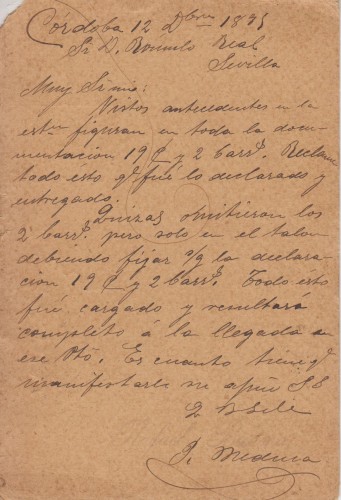 Córdoba 12 Dbre 18
Sr D. Romulo Real
Sevilla
Muy Sr mio:
Vistos antecedentes en la
estn figuran en toda la docu-
mentacion 19 C/ y 2 barrs. Reclame
todo esto q. fué lo declarado y
entregado.
Quizas omitieron los
2 barrs. pero solo en el talon
debiendo fijar s/g la declara-
cion 19 C/ y 2 barrs. Todo esto
fué cargado y resultará
completo á la llegada a
ese Pto. Es cuanto tiene q
manifestarle su afmo S S
Q B S M
J. Medina